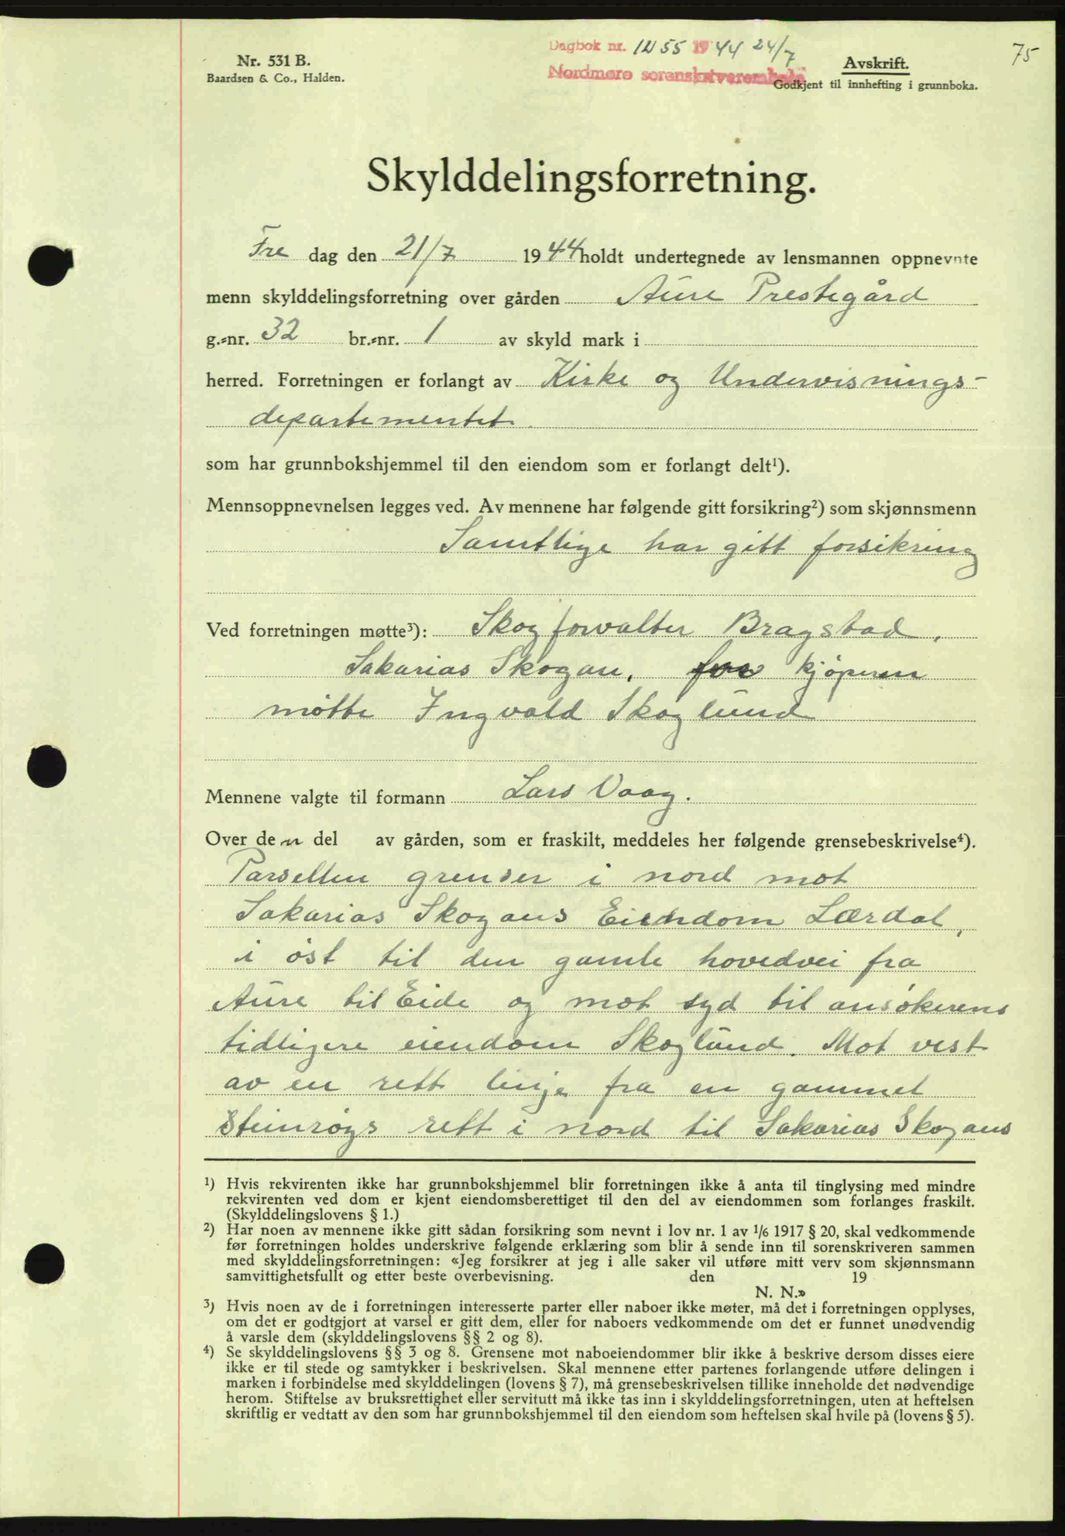 75
Dagbok nr. 1255 1944 24/7
Nordmøre sorenskriverembede
Nr. 531 B.
Baardsen & Co., Halden.
Avskrift.
Godkjent til innhefting i grunnboka.
Skylddelingsforretning.
Fre dag den 21/7 1944 holdt undertegnede av lensmannen oppnevnte
menn skylddelingsforretning over gården Aure Prestegård
g.-nr. 32 br.-nr. 1 av skyld mark i
herred. Forretningen er forlangt av Kirke og Undervisnings-
departementet.
som har grunnbokshjemmel til den eiendom som er forlangt delt¹).
Mennsoppnevnelsen legges ved. Av mennene har følgende gitt forsikring²) som skjønnsmenn
Samtlige har gitt forsikring
Ved forretningen møtte³): Skogforvalter Bragstad,
Sakarias Skogan, for kjøperen
møtte Ingvald Skoglund
Mennene valgte til formann Lars Vaag.
Over den del av gården, som er fraskilt, meddeles her følgende grensebeskrivelse⁴).
Parsellen grenser i nord mot
Sakarias Skogans Eiendom Lærdal,
i øst til den gamle hovedvei fra
Aure til Eide og mot syd til ansøkerens
tidligere eiendom Skoglund. Mot vest
av en rett linje fra en gammel
Steinrøys rett i nord til Sakarias Skogans
¹) Hvis rekvirenten ikke har grunnbokshjemmel blir forretningen ikke å anta til tinglysing med mindre
rekvirenten ved dom er kjent eiendomsberettiget til den del av eiendommen som forlanges fraskilt.
(Skylddelingslovens § 1.)
²) Har noen av mennene ikke gitt sådan forsikring som nevnt i lov nr. 1 av 1/6 1917 § 20, skal vedkommende
før forretningen holdes underskrive følgende erklæring som blir å sende inn til sorenskriveren sammen
med skylddelingsforretningen: «Jeg forsikrer at jeg i alle saker vil utføre mitt verv som skjønnsmann
samvittighetsfullt og etter beste overbevisning. den 19
N. N.»
³) Hvis noen av de i forretningen interesserte parter eller naboer ikke møter, må det i forretningen opplyses,
om det er godtgjort at varsel er gitt dem, eller for naboers vedkommende om det er funnet unødvendig
å varsle dem (skylddelingslovens §§ 2 og 8).
⁴) Se skylddelingslovens §§ 3 og 8. Grensene mot naboeiendommer blir ikke å beskrive dersom disses eiere
ikke er til stede og samtykker i beskrivelsen. Skal mennene etter partenes forlangende utføre delingen i
marken i forbindelse med skylddelingen (lovens § 7), må grensebeskrivelsen tillike inneholde det nødvendige
herom. Stiftelse av bruksrettighet eller servitutt må ikke tas inn i skylddelingsforretningen, uten at heftelsen
skriftlig er vedtatt av den som har grunnbokshjemmel til den eiendom som heftelsen skal hvile på (lovens § 5).